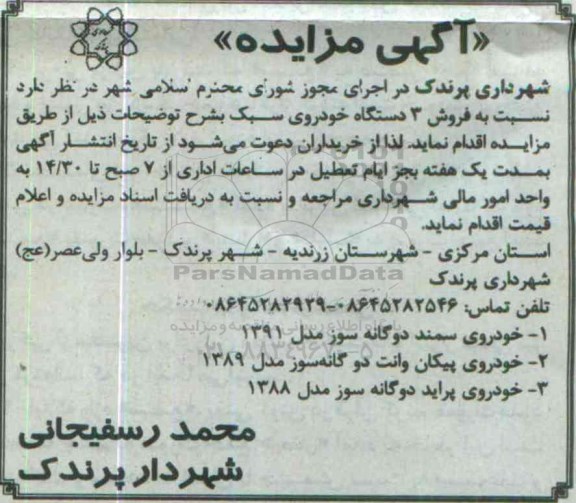 «آگهی مزایده»
شهرداری پرندک در اجرای مجوز شورای محترم اسلامی شهر در نظر دارد
نسبت به فروش ۳ دستگاه خودروی سبک بشرح توضیحات ذیل از طریق
مزایده اقدام نماید. لذا از خریداران دعوت می‌شود از تاریخ انتشار آگهی
بمدت یک هفته بجز ایام تعطیل در ساعات اداری از ۷ صبح تا ۱۴/۳۰ به
واحد امور مالی شهرداری مراجعه و نسبت به دریافت اسناد مزایده و اعلام
قیمت اقدام نماید.
استان مرکزی - شهرستان زرندیه - شهر پرندک - بلوار ولی‌عصر(عج)
شهرداری پرندک
ParsNamadData
تلفن تماس: ۰۸۶۴۵۲۸۲۵۴۶-۰۸۶۴۵۲۸۲۹۲۹
۱- خودروی سمند دوگانه سوز مدل ۱۳۹۱
۲- خودروی پیکان وانت دو گانه‌سوز مدل ۱۳۸۹
۳- خودروی پراید دوگانه سوز مدل ۱۳۸۸
محمد رسفیجانی
شهردار پرندک